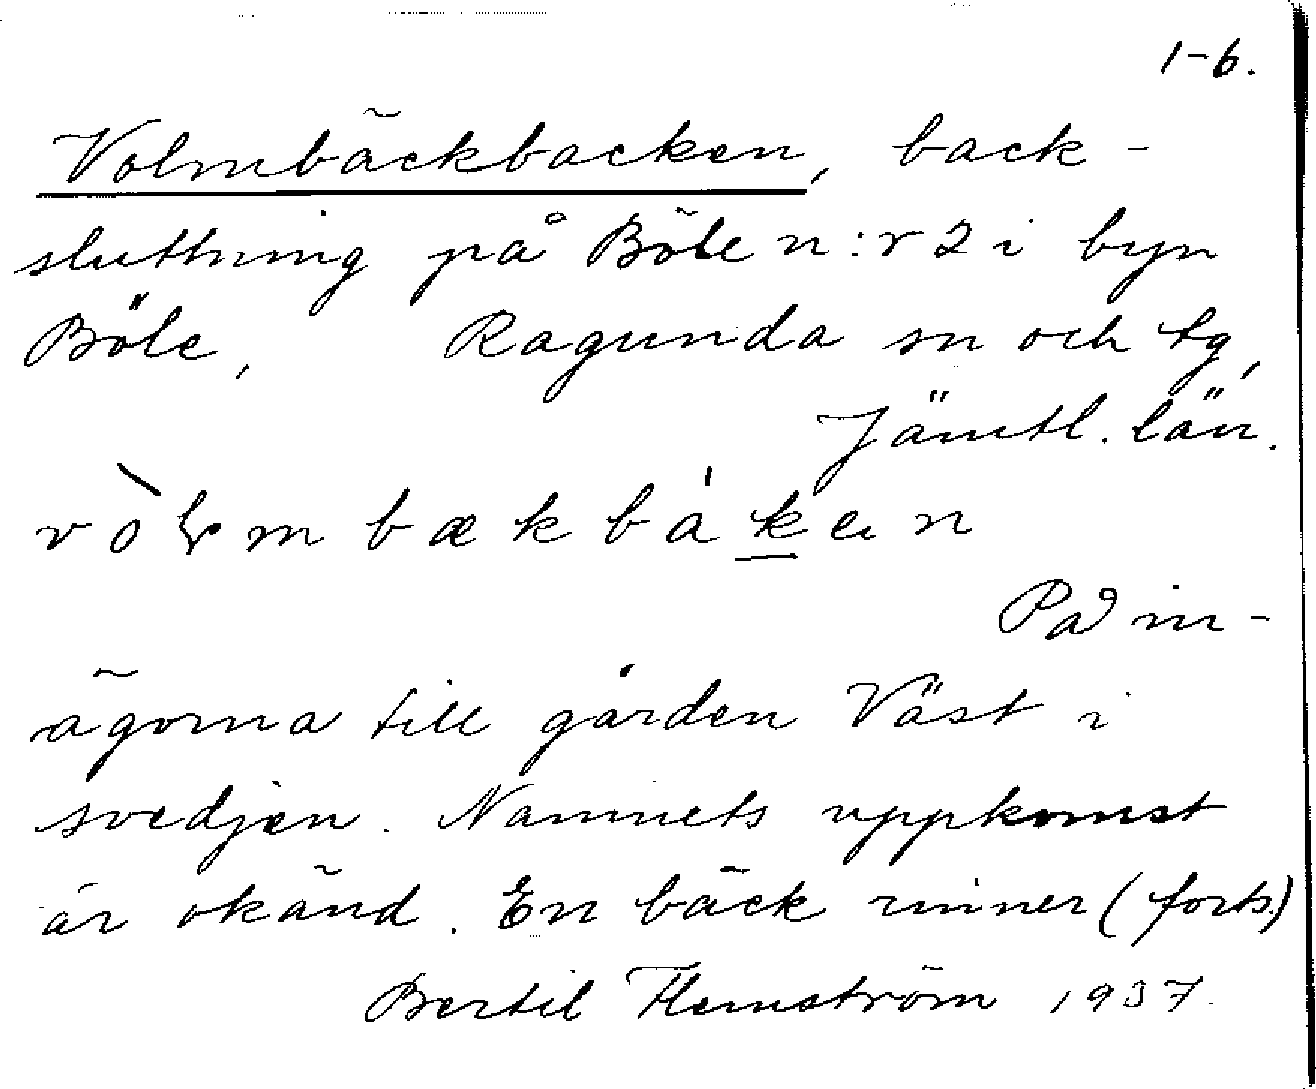 1-6.
Volmbäckbacken, back-
sluttning på Böle n:r 2 i byn
Böle, Ragunda sn och tg,
Jämtl. län.
vòlmbækbáken
På in-
ägorna till gården Väst i
svedjen. Namnets uppkomst
är okänd. En bäck rinner (forts.)
Bertil Flemström 1937.